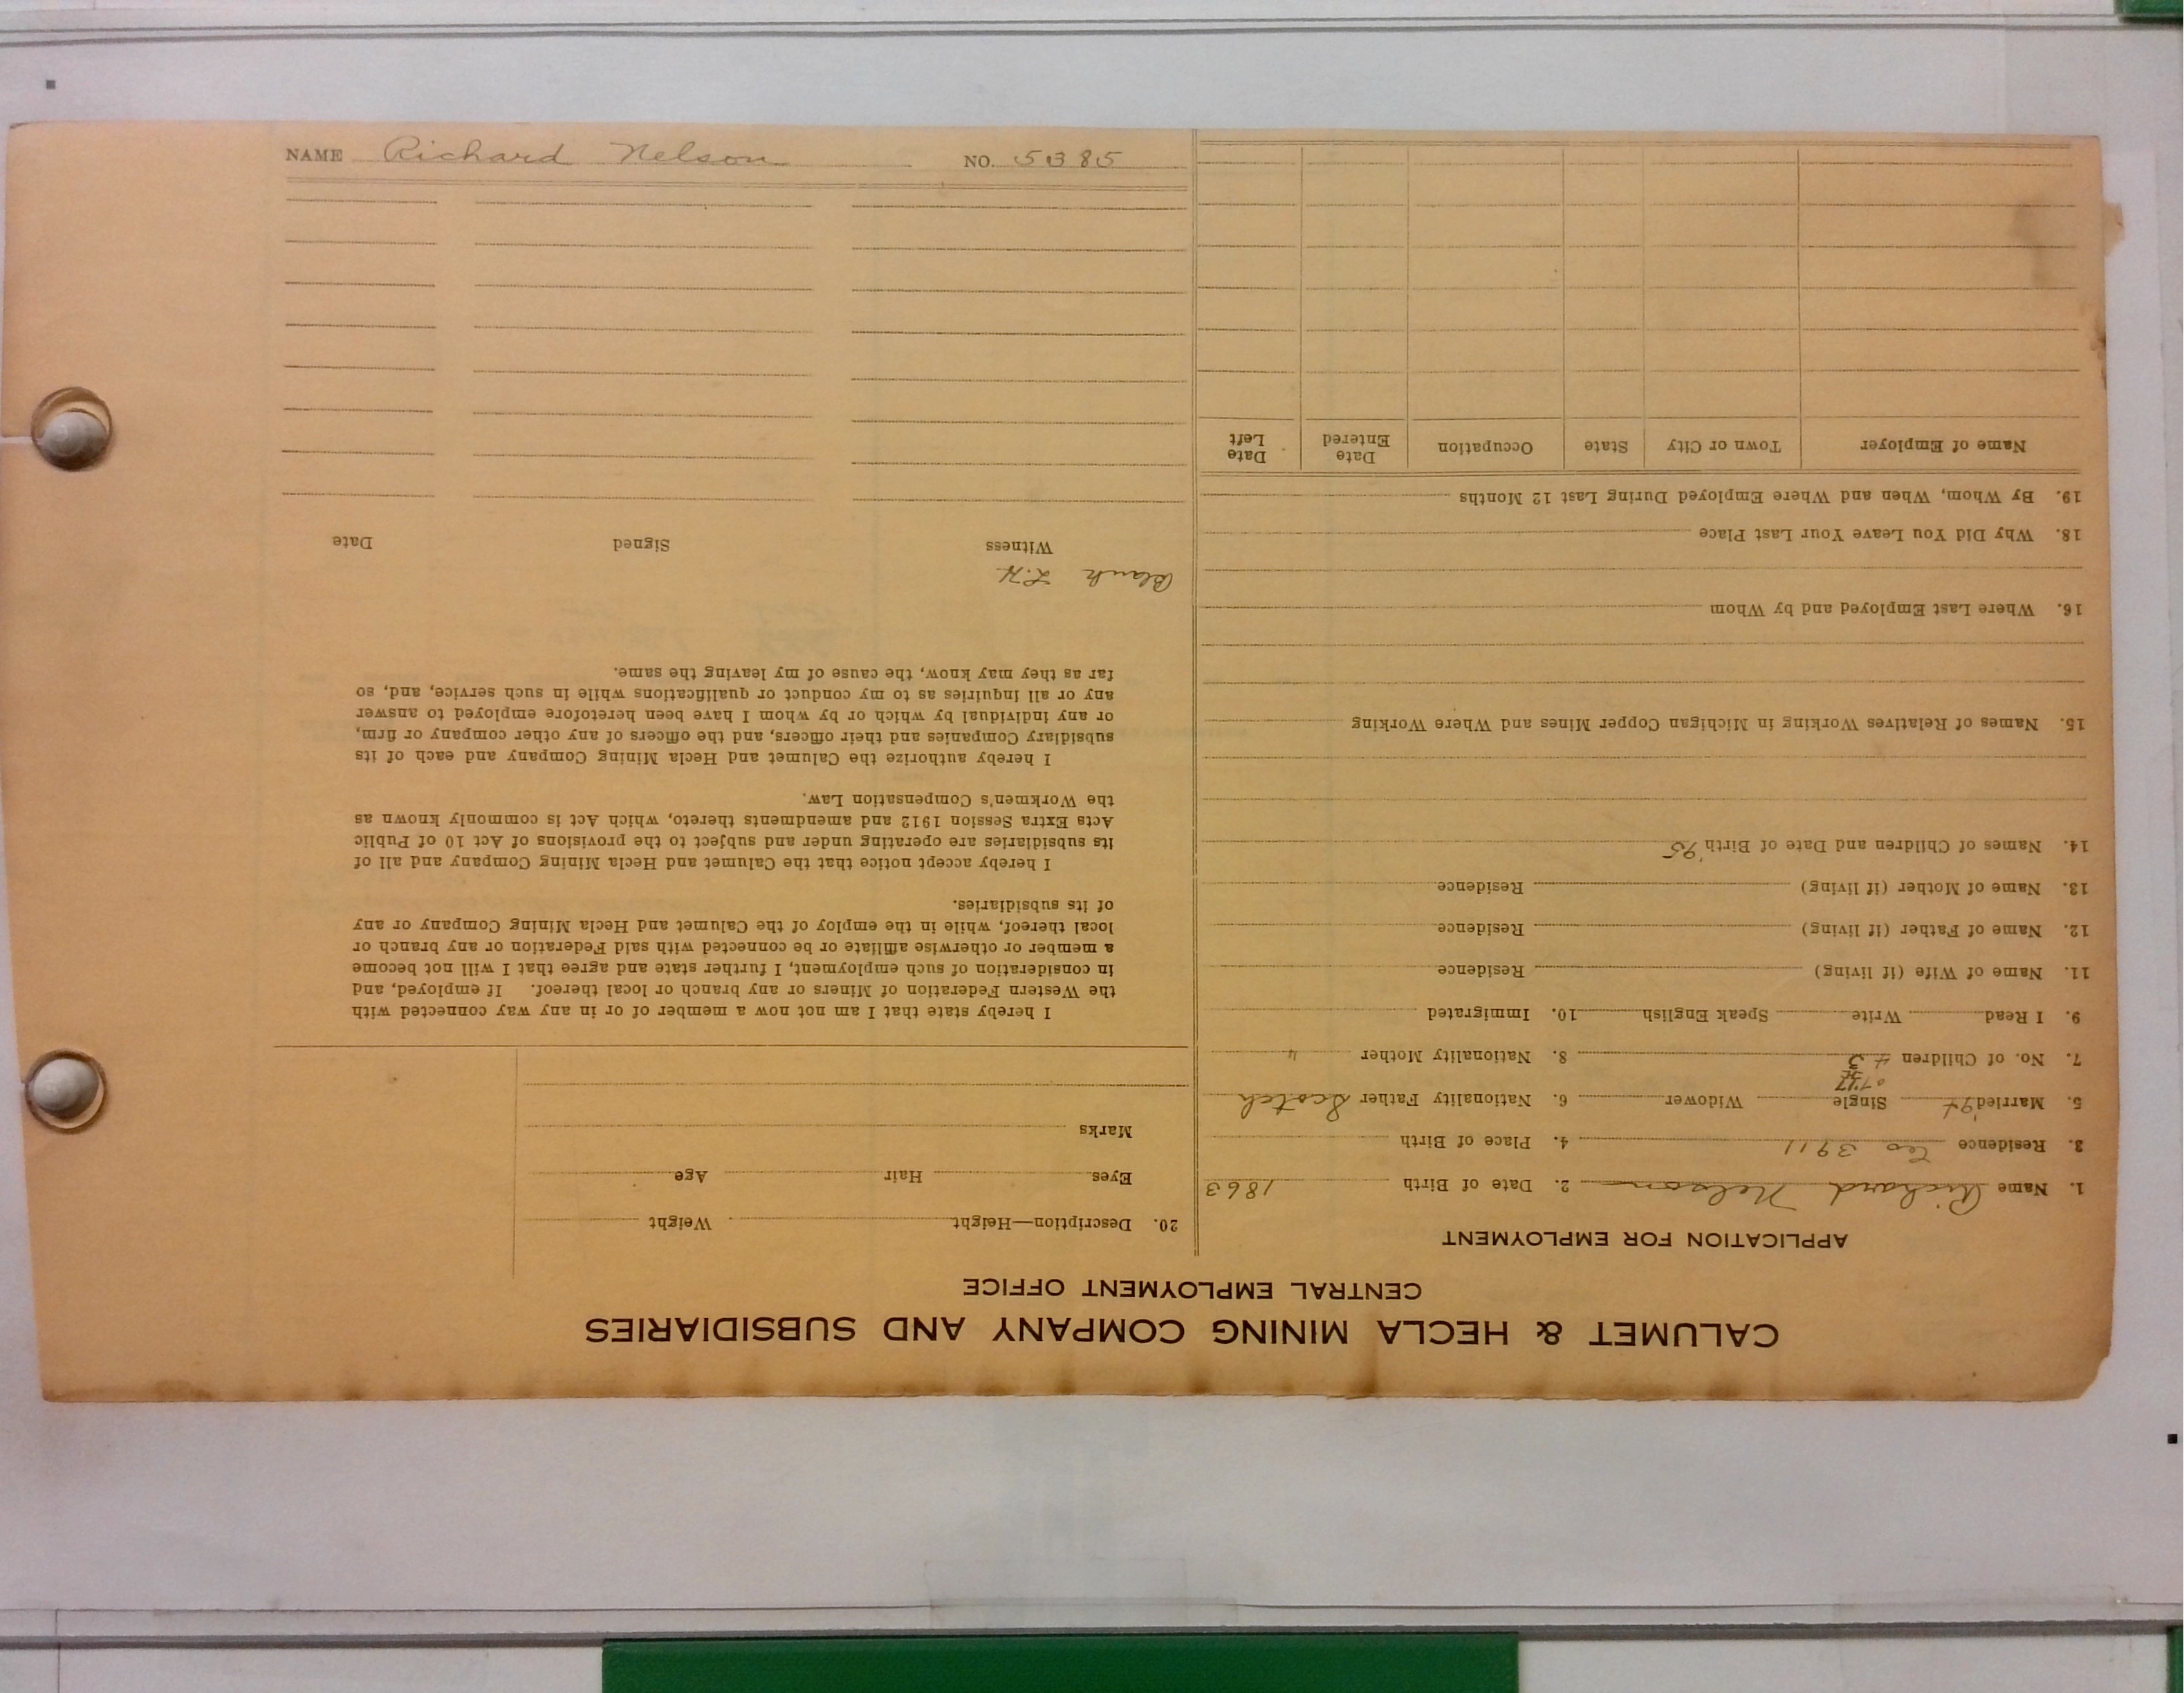 NAME Richard Nelson NO. 5385
CALUMET & HECLA MINING COMPANY AND SUBSIDIARIES
CENTRAL EMPLOYMENT OFFICE
APPLICATION FOR EMPLOYMENT
1. Name Richard Nelson 2. Date of Birth 1863
3. Residence Co 3911 4. Place of Birth
5. Married '94 Single Widower 6. Nationality Father Scotch
7. No. of Children 4 3 8. Nationality Mother "
9. I Read Write Speak English 10. Immigrated
11. Name of Wife (if living) Residence
12. Name of Father (if living) Residence
13. Name of Mother (if living) Residence
14. Names of Children and Date of Birth '95
15. Names of Relatives Working in Michigan Copper Mines and Where Working
16. Where Last Employed and by Whom
18. Why Did You Leave Your Last Place
19. By Whom, When and Where Employed During Last 12 Months
Name of Employer Town or City State Occupation Date Entered Date Left
20. Description—Height Weight
Eyes Hair Age
Marks
I hereby state that I am not now a member of or in any way connected with
the Western Federation of Miners or any branch or local thereof. If employed, and
in consideration of such employment, I further state and agree that I will not become
a member or otherwise affiliate or be connected with said Federation or any branch or
local thereof, while in the employ of the Calumet and Hecla Mining Company or any
of its subsidiaries.
I hereby accept notice that the Calumet and Hecla Mining Company and all of
its subsidiaries are operating under and subject to the provisions of Act 10 of Public
Acts Extra Session 1912 and amendments thereto, which Act is commonly known as
the Workmen's Compensation Law.
I hereby authorize the Calumet and Hecla Mining Company and each of its
subsidiary Companies and their officers, and the officers of any other company or firm,
or any individual by which or by whom I have been heretofore employed to answer
any or all inquiries as to my conduct or qualifications while in such service, and, so
far as they may know, the cause of my leaving the same.
Blank L.H.
Witness Signed Date